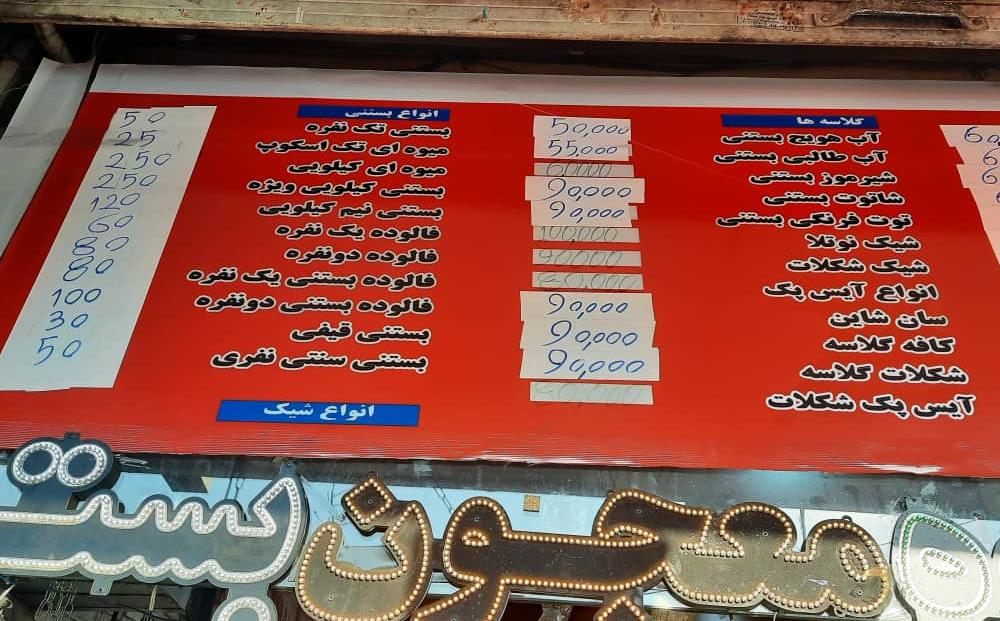 کلاسه ها
آب هویج بستنی 50,000
آب طالبی بستنی 55,000
شیرموز بستنی 60,000
شاتوت بستنی 90,000
توت فرنگی بستنی 90,000
شیک نوتلا 100,000
شیک شکلات 90000
انواع آیس پک
سان شاین 90,000
کافه گلاسه 90,000
شکلات گلاسه 90,000
آیس پک شکلات
انواع بستنی
بستنی تک نفره 50
میوه ای تک اسکوپ 25
میوه ای کیلویی 250
بستنی کیلویی ویژه 250
بستنی نیم کیلویی 120
فالوده یک نفره 60
فالوده دونفره 80
فالوده بستنی یک نفره 60
فالوده بستنی دونفره 100
بستنی قیفی 30
بستنی سنتی نفری 50
انواع شیک
معجون بست